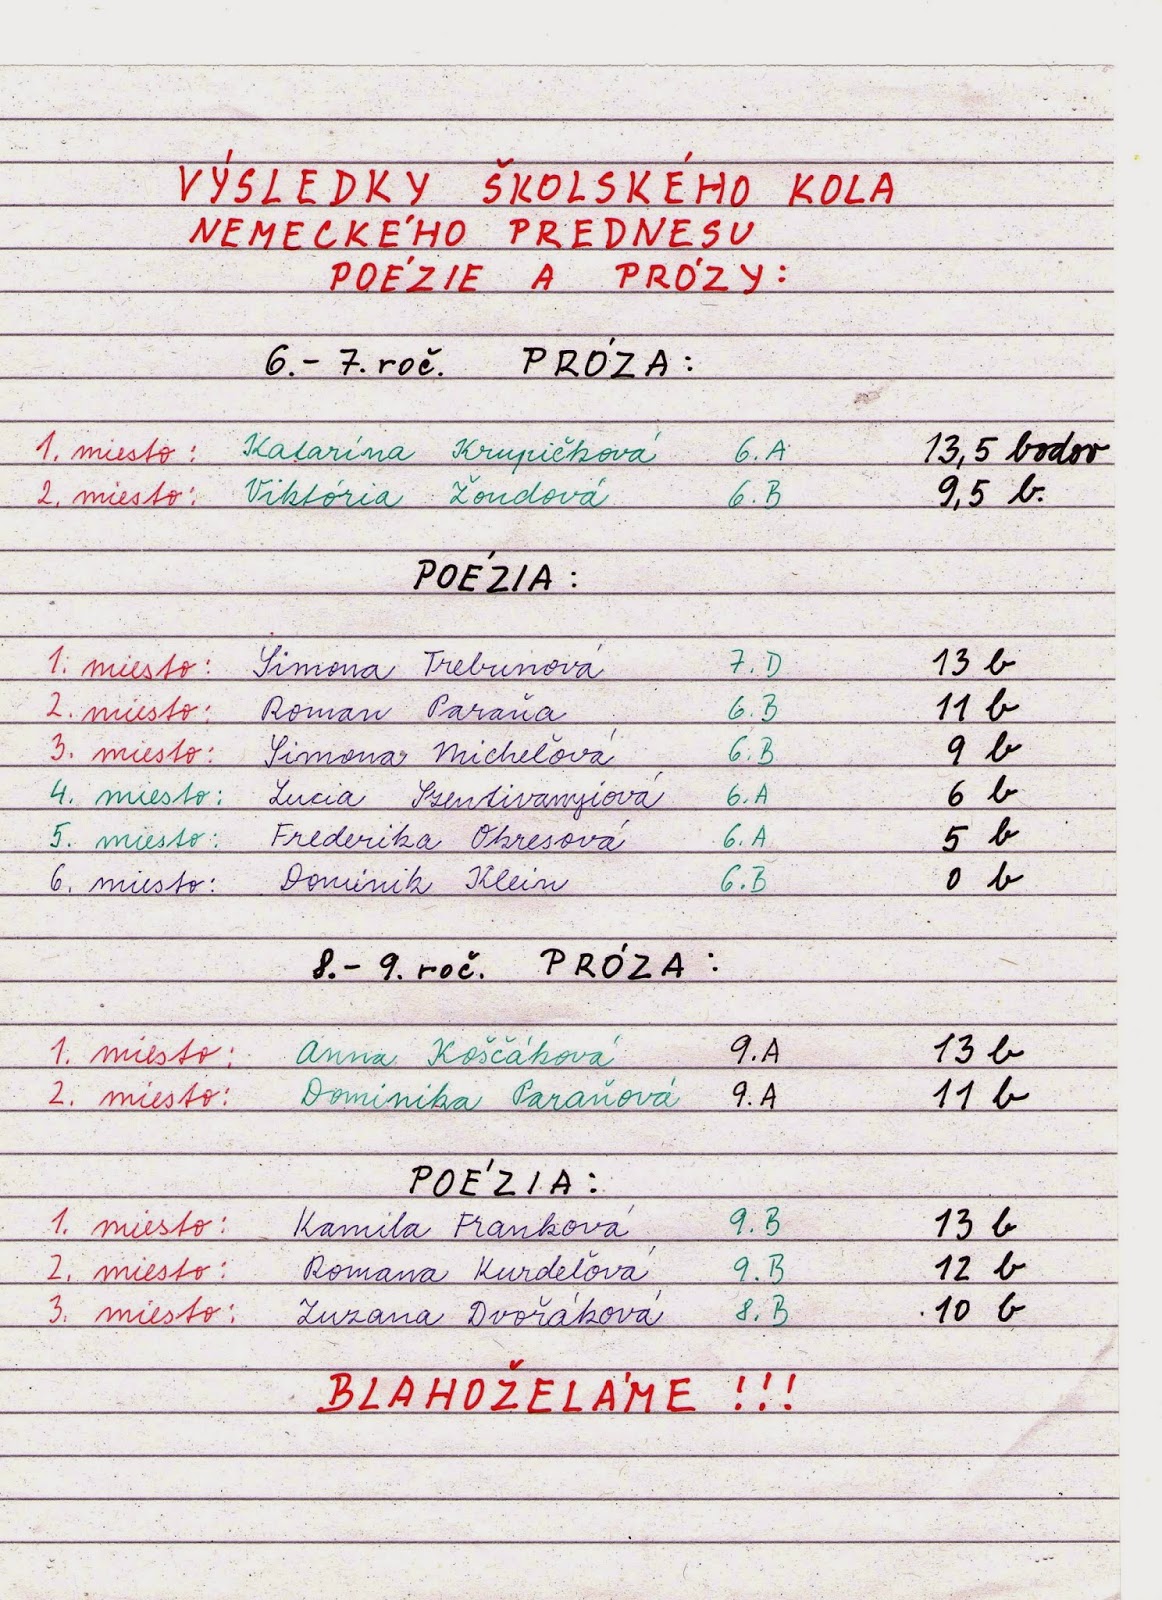 VÝSLEDKY ŠKOLSKÉHO KOLA
NEMECKÉHO PREDNESU
POÉZIE A PRÓZY:
6.- 7. roč. PRÓZA:
1. miesto: Katarína Krupičková 6.A 13,5 bodov
2. miesto: Viktória Žondová 6.B 9,5 b.
POÉZIA:
1. miesto: Simona Trebunová 7.D 13 b
2. miesto: Roman Paraňa 6.B 11 b
3. miesto: Simona Micheľová 6.B 9 b
4. miesto: Lucia Szentivanyiová 6.A 6 b
5. miesto: Frederika Okresová 6.A 5 b
6. miesto: Dominik Klein 6.B 0 b
8.- 9. roč. PRÓZA:
1. miesto: Anna Koščáková 9.A 13 b
2. miesto: Dominika Paraňová 9.A 11 b
POÉZIA:
1. miesto: Kamila Franková 9.B 13 b
2. miesto: Romana Kurdeľová 9.B 12 b
3. miesto: Zuzana Dvořáková 8.B 10 b
BLAHOŽELÁME !!!